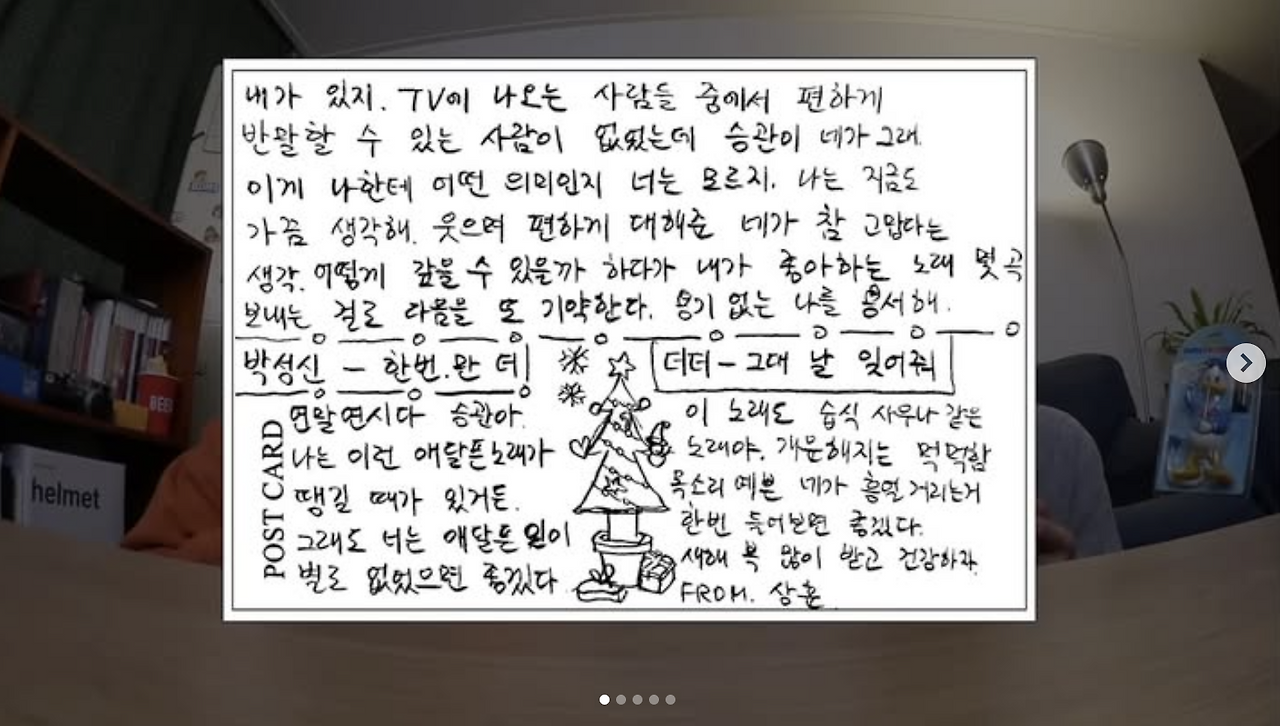 내가 있지. TV에 나오는 사람들 중에서 편하게
반말할 수 있는 사람이 없었는데 승관이 네가 그래.
이게 나한테 어떤 의미인지 너는 모르지. 나는 지금도
가끔 생각해. 웃으며 편하게 대해준 네가 참 고맙다는
생각. 어떻게 갚을 수 있을까 하다가 내가 좋아하는 노래 몇 곡
보내는 걸로 다음을 또 기약한다. 용기 없는 나를 용서해.
박성신 - 한번만 더
더더 - 그대 날 잊어줘
POST CARD
연말연시다 승관아.
나는 이런 애달픈노래가
땡길 때가 있거든.
그래도 너는 애달픈 일이
별로 없었으면 좋겠다.
이 노래도 습식 사우나 같은
노래야. 개운해지는 먹먹함
목소리 예쁜 네가 흥얼거리는거
한번 들어보면 좋겠다.
새해 복 많이 받고 건강하자.
FROM. 상훈
BEE
helmet